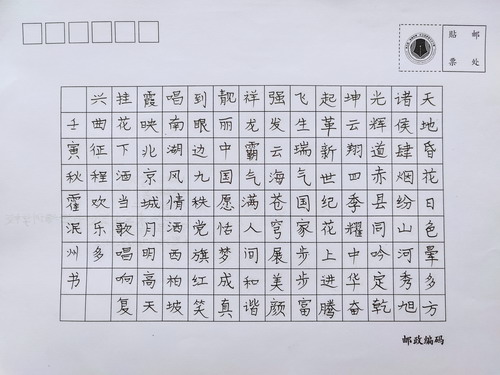 贴邮
票处
天地昏花日色晕多方
诸侯肆烟纷山河秀旭
光辉道赤县同吟定乾
坤云翔四季耀中华奋
起革新世纪花上进腾
飞生瑞气国家步步富
强发云海苍穹展美颜
祥龙霸气满人间和谐
靓丽中国愿怙梦成真
到眼边九秩党旗红笑
唱南湖风情洒西柏坡
霞映北京城月明高天
挂花下洒当歌唱响复
兴曲征程欢乐多
壬寅秋霍泯州书
邮政编码